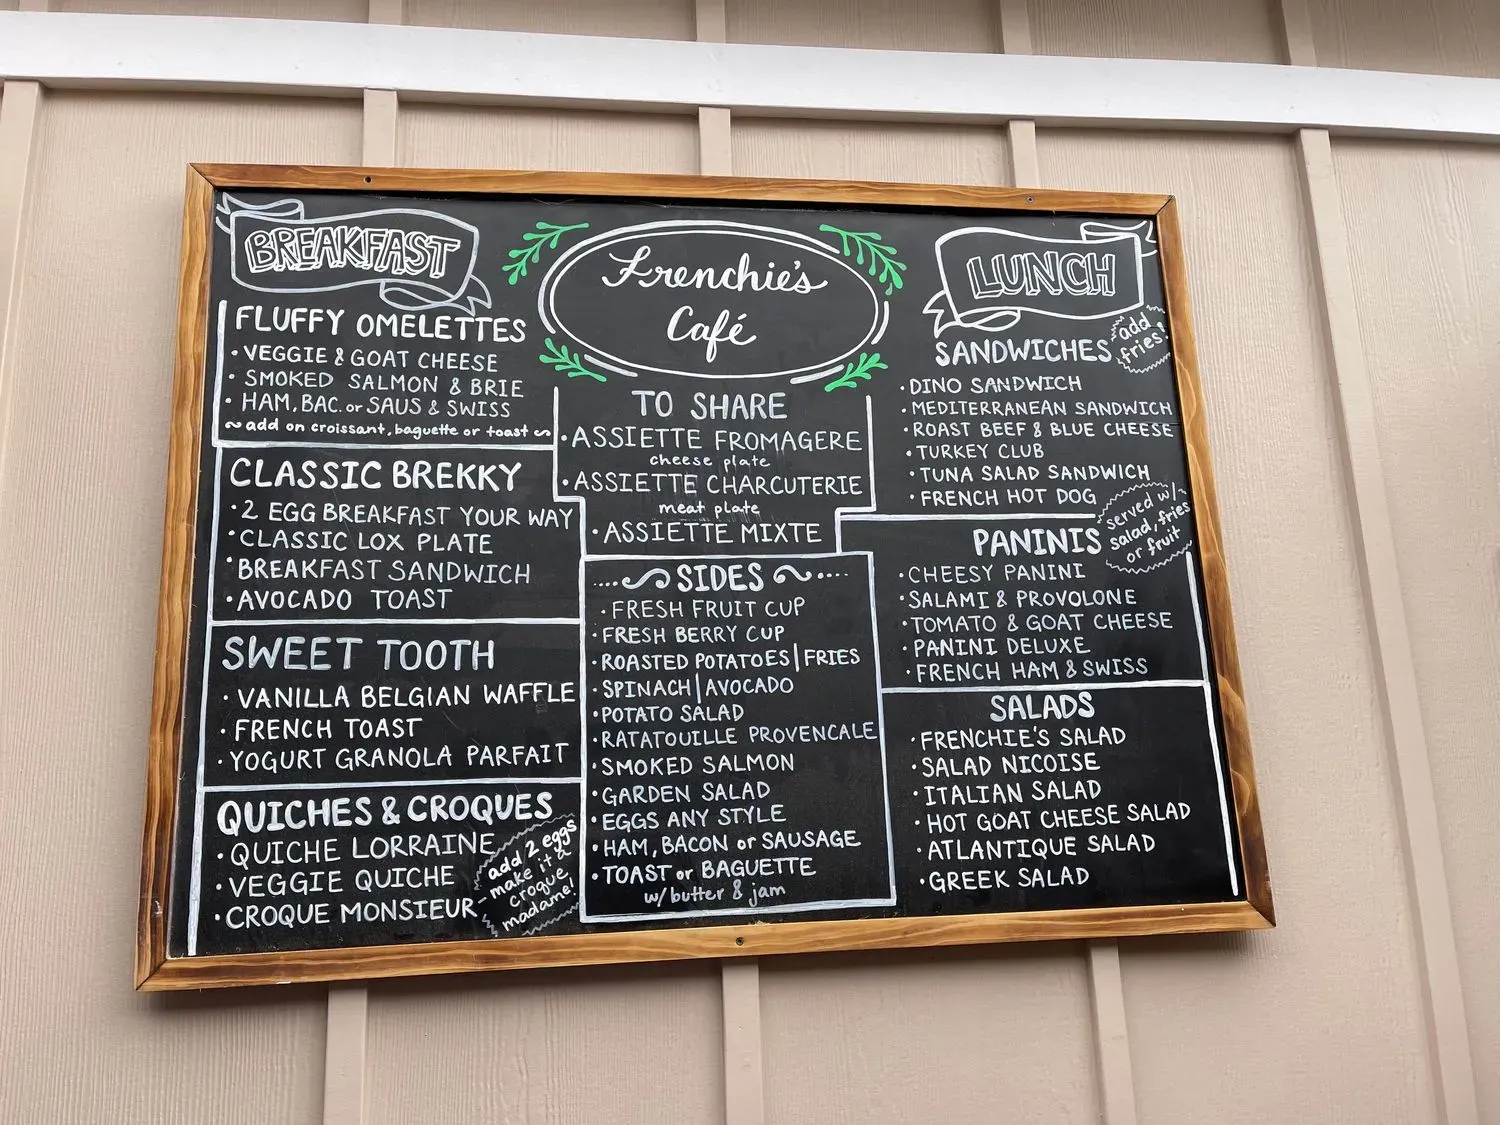 BREAKFAST
FLUFFY OMELETTES
• VEGGIE & GOAT CHEESE
• SMOKED SALMON & BRIE
• HAM, BAC. or SAUS & SWISS
~ add on croissant, baguette or toast ~
CLASSIC BREKKY
• 2 EGG BREAKFAST YOUR WAY
• CLASSIC LOX PLATE
• BREAKFAST SANDWICH
• AVOCADO TOAST
SWEET TOOTH
• VANILLA BELGIAN WAFFLE
• FRENCH TOAST
• YOGURT GRANOLA PARFAIT
QUICHES & CROQUES
• QUICHE LORRAINE
• VEGGIE QUICHE
• CROQUE MONSIEUR
add 2 eggs
make it a
croque
madame!
Frenchie's
Café
TO SHARE
• ASSIETTE FROMAGERE
cheese plate
• ASSIETTE CHARCUTERIE
meat plate
• ASSIETTE MIXTE
SIDES
• FRESH FRUIT CUP
• FRESH BERRY CUP
• ROASTED POTATOES | FRIES
• SPINACH | AVOCADO
• POTATO SALAD
• RATATOUILLE PROVENCALE
• SMOKED SALMON
• GARDEN SALAD
• EGGS ANY STYLE
• HAM, BACON or SAUSAGE
• TOAST or BAGUETTE
w/ butter & jam
LUNCH
SANDWICHES
add
fries!
• DINO SANDWICH
• MEDITERRANEAN SANDWICH
• ROAST BEEF & BLUE CHEESE
• TURKEY CLUB
• TUNA SALAD SANDWICH
• FRENCH HOT DOG
PANINIS
served w/
salad, fries
or fruit
• CHEESY PANINI
• SALAMI & PROVOLONE
• TOMATO & GOAT CHEESE
• PANINI DELUXE
• FRENCH HAM & SWISS
SALADS
• FRENCHIE'S SALAD
• SALAD NICOISE
• ITALIAN SALAD
• HOT GOAT CHEESE SALAD
• ATLANTIQUE SALAD
• GREEK SALAD